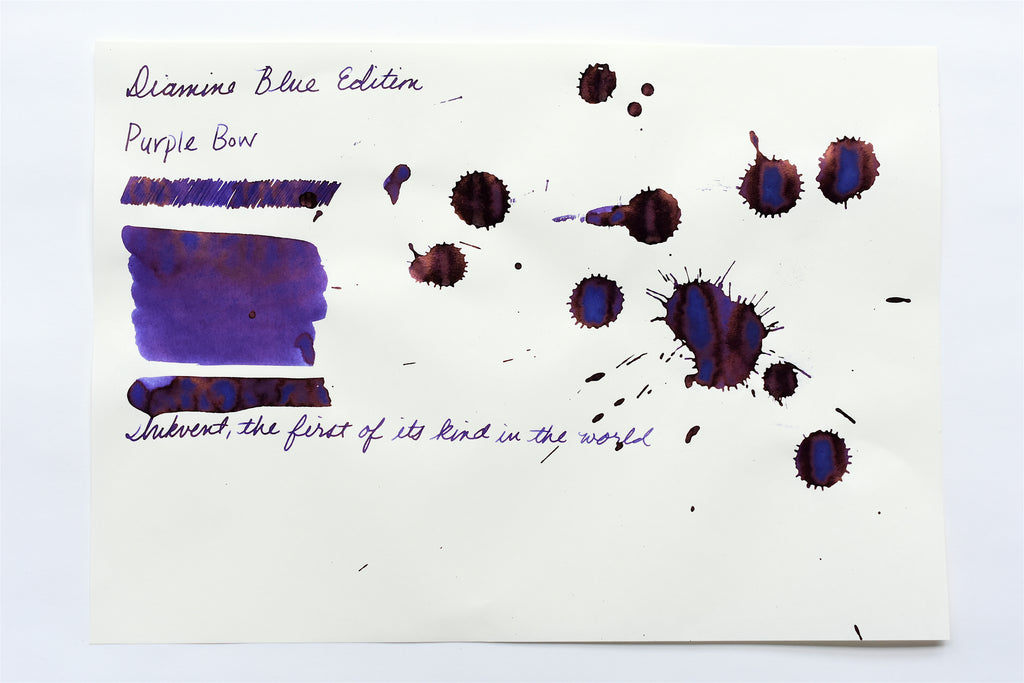 Diamine Blue Edition
Purple Bow
Inkvent, the first of its kind in the world